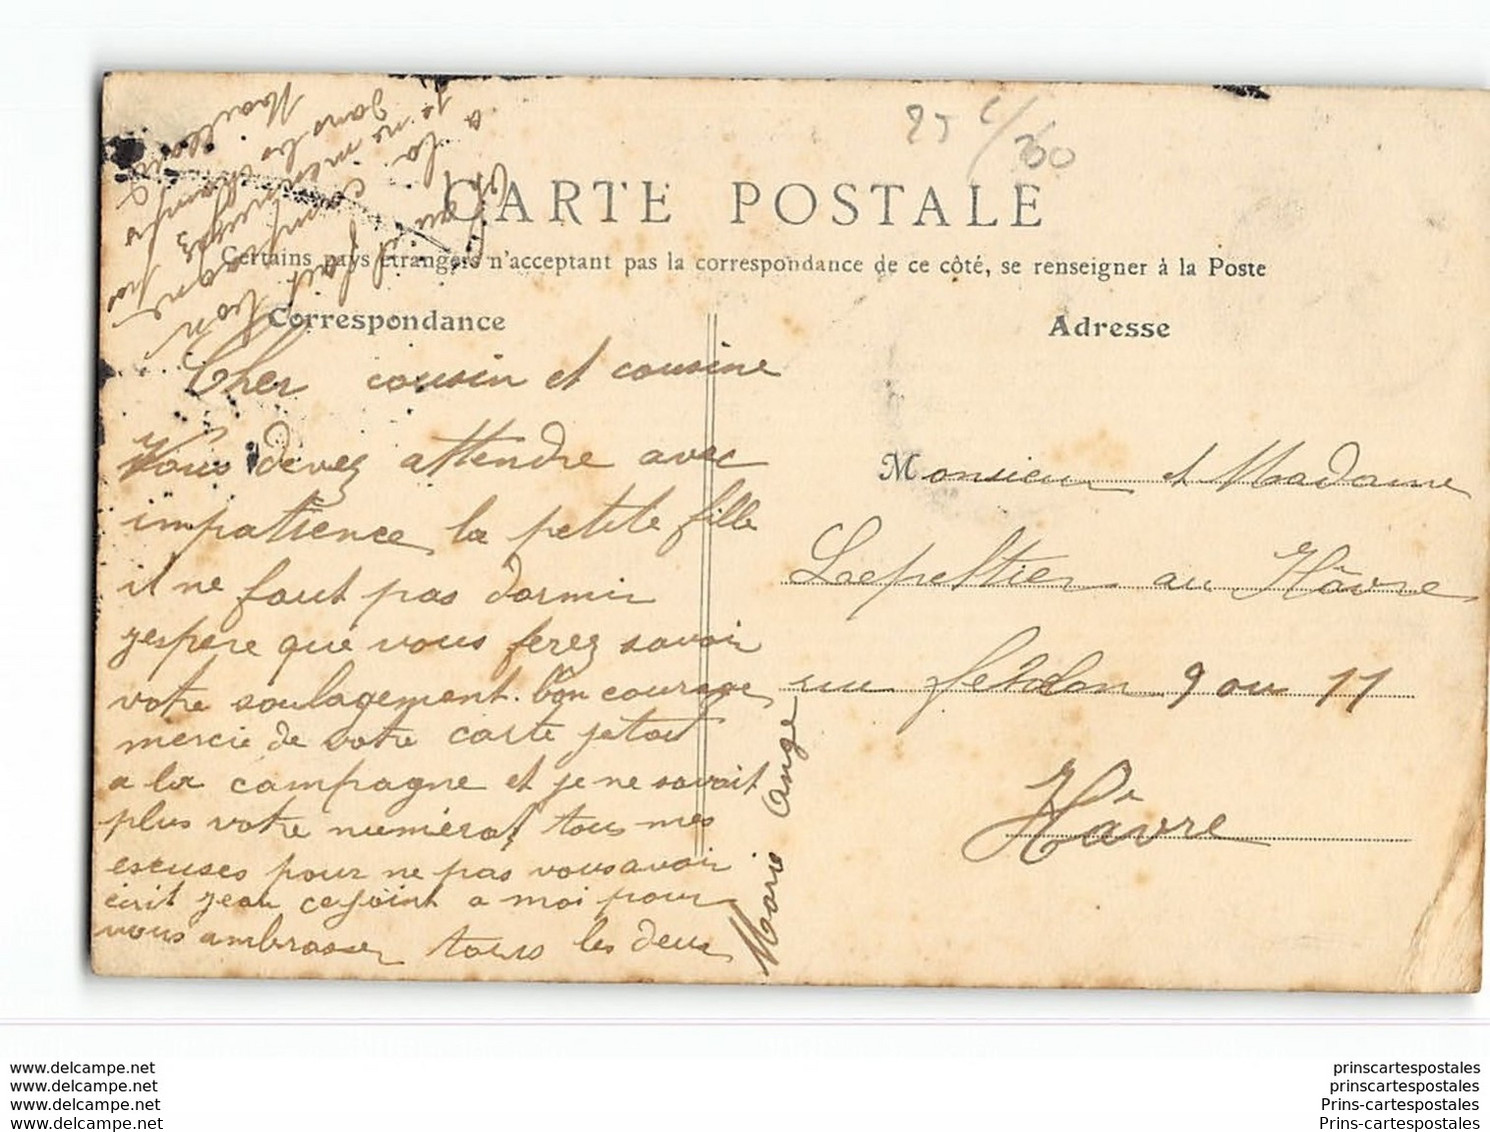 25 c/
360
CARTE POSTALE
Certains pays étrangers n'acceptant pas la correspondance de ce côté, se renseigner à la Poste
Correspondance
Adresse
Cher cousin et cousine
Vous devez attendre avec
impatience la petite fille
il ne faut pas dormir
jespere que vous ferez savoir
votre soulagement. bon courage
mercie de votre carte jetait
a la campagne et je ne savait
plus votre numérot tous mes
escuses pour ne pas vous avoir
écrit jean ce joint a moi pour
vous ambrasser tous les deux
Marie Ange
Monsieur et Madame
Lepeltier au Hâvre
rue 9 ou 11
Hâvre
qu'il fait bon
a la campagne
je ne
dans les champs
www.delcampe.net
www.delcampe.net
www.delcampe.net
www.delcampe.net
prinscartespostales
prinscartespostales
Prins-cartespostales
Prins-cartespostales